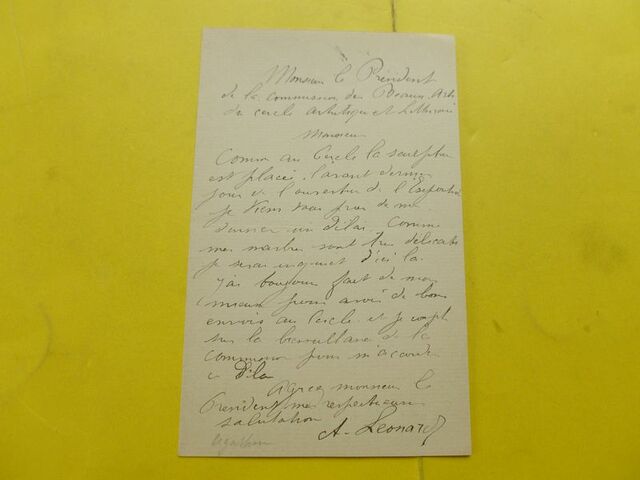 Monsieur le Président
de la commission des Beaux-Arts
du cercle artistique et littéraire
Monsieur
Comme au Cercle la sculpture
est placé l'avant dernier
jour de l'ouverture de l'Exposition
je viens vous prier de me
donner un délai. Comme
mes marbres sont très délicats
je serai inquiet d'ici la
j'ai toujours fait de mon
mieux pour avoir de bons
envois au Cercle et je compte
sur la bienveillance de la
commission pour m'accorder
ce délai
Agréez monsieur le
Président mes respectueuses
salutations
A. Leonard